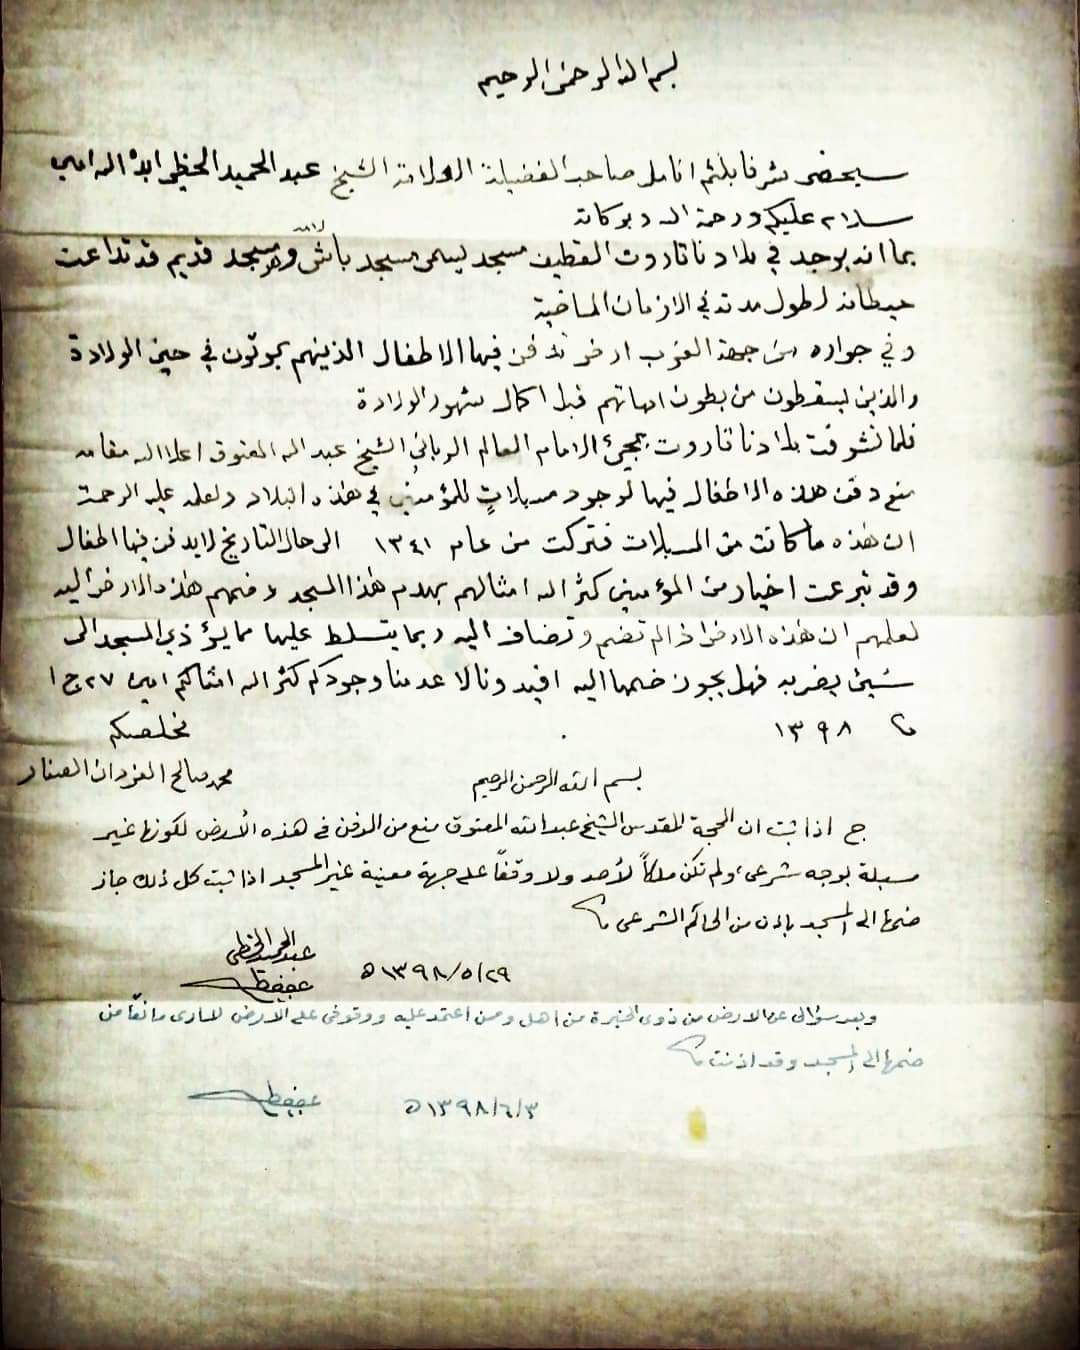 بسم الله الرحمن الرحيم
سيحضى شرفا بلثم انامل صاحب الفضيلة العلامة الشيخ عبد الحميد الخطي ايده الله امين
سلام عليكم ورحمة الله وبركاته
بما انه يوجد في بلادنا تاروت القطيف مسجد يسمى مسجد باش وهو مسجد قديم قد تداعت
حيطانه لطول مدته في الازمان الماضية
وفي جواره من جهة الغرب ارض تدفن فيها الاطفال الذينهم يموتون في حين الولادة
والذين يسقطون من بطون امهاتهم قبل اكمال شهور الولادة
فلما تشرفت بلادنا تاروت بمجيئ الامام العالم الرباني الشيخ عبد الله المعتوق اعلا الله مقامه
منع دفن هذه الاطفال فيها لوجود مسبلاتٍ للمؤمنين في هذه البلاد ولعلمه عليه الرحمة
ان هذه ما كانت من المسبلات فتركت من عام ١٣٤١ الى حال التاريخ لا يدفن فيها اطفال
وقد تبرعت اخيار من المؤمنين كثر الله امثالهم بهدم هذا المسجد وضمهم هذه الارض اليه
لعلمهم ان هذه الارض اذا لم تضم وتضاف اليه ربما يتسلط عليها مما يؤذي المسجد الى
شيئ يضر به فهل يجوز ضمها اليه افيدونا لا عدمنا وجودكم كثر الله امثالكم امين ٢٧ ج ١
١٣٩٨
مخلصكم
محمد صالح الفردان الصفار
بسم الله الرحمن الرحيم
ج اذا ثبت ان الحجة المقدس الشيخ عبد الله المعتوق منع من الدفن في هذه الأرض لكونها غير
مسبلة بوجه شرعي، ولم تكن ملكاً لأحد ولا وقفاً على جهة معينة غير المسجد اذا ثبت كل ذلك جاز
ضمها الى المسجد باذن من الحاكم الشرعي
عبد الحميد الخطي
١٣٩٨/٥/٢٩ه
وبعد سؤالي عن الارض من ذوي الخبرة من اهل ومن اعتمد عليه ووقوفي على الارض لا ارى مانعًا من
ضمها الى المسجد وقد اذنت
١٣٩٨/٦/٣ه